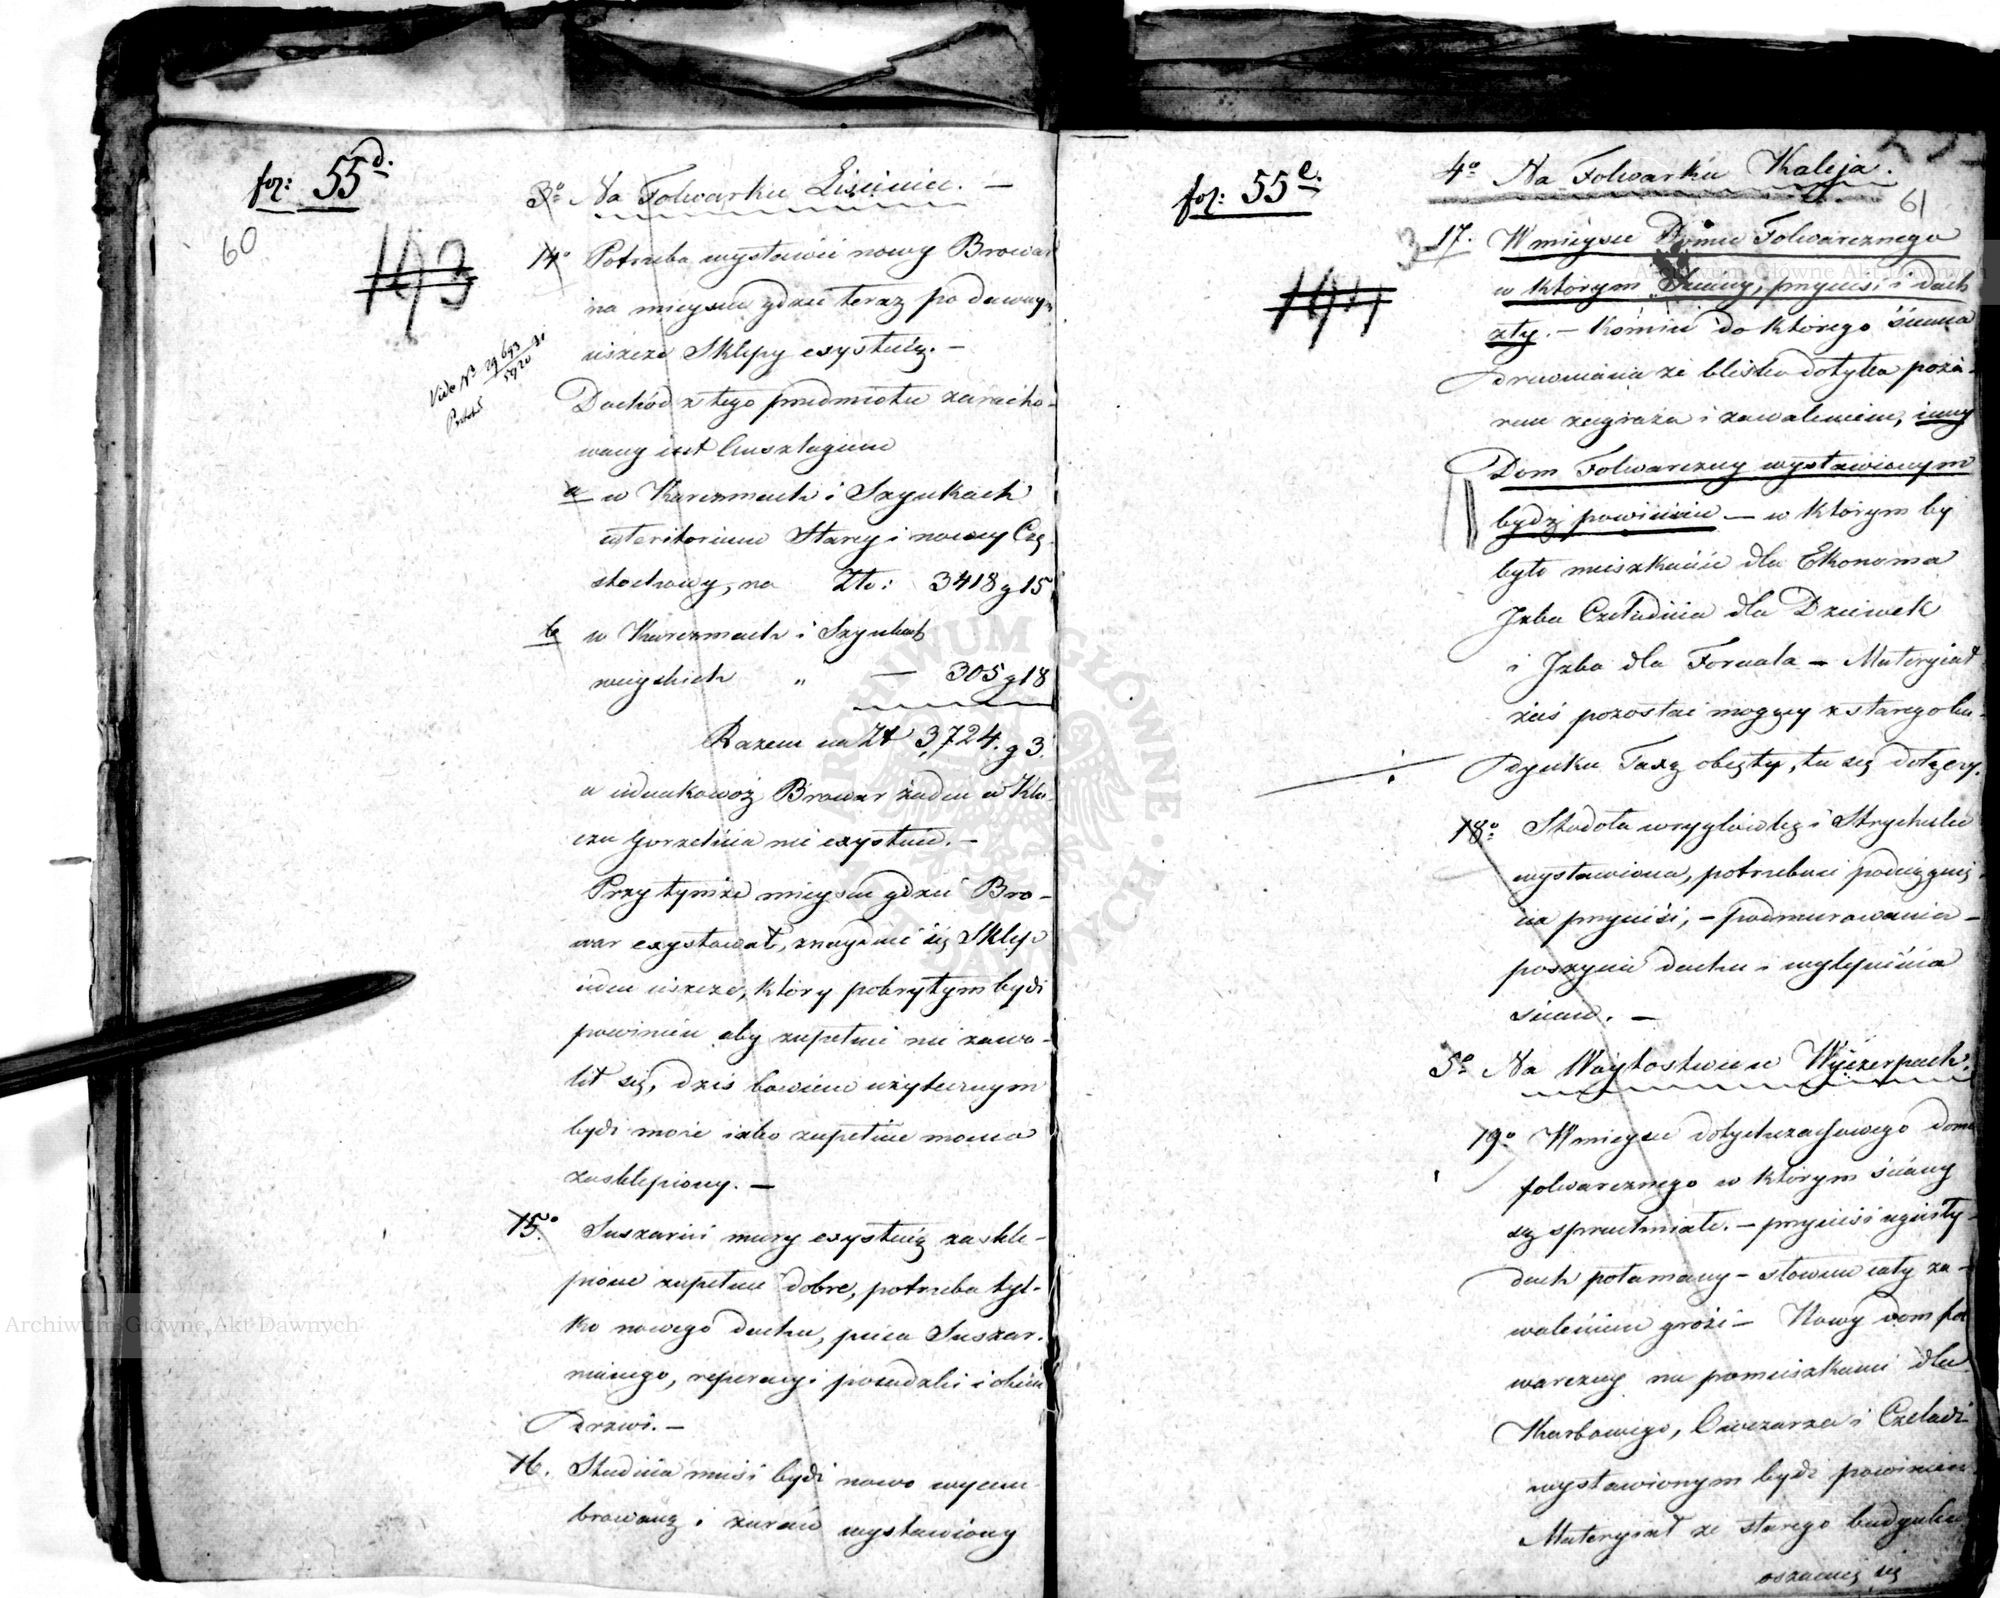 fol: 55d.
60
193
Vide Nro 29693
5920
3o Na Folwarku Lisiniec. —
14o Potrzeba wystawić nowy Browar
na mieyscu gdzie teraz po dawnym
ieszcze Sklepy exystuią. —
Dochód z tego przedmiotu zaracho-
wany iest Ansztagiem
a w Karczmach i Szynkach
territorium Starey i nowey Czę-
stochowy, na Złt: 3418 g 15
b w Karczmach i Szynkach
wieyskich " — 305 g 18
Razem na Zł 3,724. g 3.
a iednakowoż Browar żaden w Klu-
czu Gorzelnia nie exystuie. —
Przy tymże mieyscu gdzie Bro-
war exystował, znayduie się Sklep
ieden ieszcze, który pokrytym bydź
powinien aby zupełnie nie zawa-
lił się, dziś bowiem użytecznym
bydź może iako zupełnie mocno
zasklepiony. —
15o Suszarni mury exystuią zaskle-
pione zupełnie dobre, potrzeba tyl-
ko nowego dachu, pieca Suszar-
nianego, reperacyi posadzki i okien
Drzwi. —
16. Studnia musi bydź nowo wycem-
browaną i żuraw wystawiony
fol: 55e.
61
194
4o Na Folwarku Kaleja.
3 17. W mieyscu Domu Folwarcznego
w którym Ściany, przyciesi i dach
zły. — Komin do którego ściana
drewniana ze blisko dotyka poża-
rem zagraża i zawaleniem, inny
Dom Folwarczny wystawionym
bydź powinien — w którym by
było mieszkanie dla Ekonoma
Izba Czeladnia dla Dziewek
i Izba dla Fornala — Materyiał
zaś pozostać mogący z starego bu-
dynku Taxą obięty, tu się dołączy.
18o Stodoła w ryglówkę i Strychulec
wystawiona, potrzebuie podciągnie-
nia przyciesi, — podmurowania —
poszycia dachu i wylepienia
ścian. —
5o Na Woytostwie w Wyczerpach.
19o W mieyscu dotychczasowego domu
folwarcznego w którym ściany
są spruchniałe. — przyciesi zgniły-
dach połamany — słowem cały za-
waleniem grozi — Nowy dom fol
warczny na pomieszkanie dla
Karbowego, Owczarza i Czeladzi
wystawionym bydź powinien
Materyiał ze starego budynku
oszacuie się
Archiwum Główne Akt Dawnych
Archiwum Główne Akt Dawnych
ARCHIWUM GŁÓWNE AKT DAWNYCH